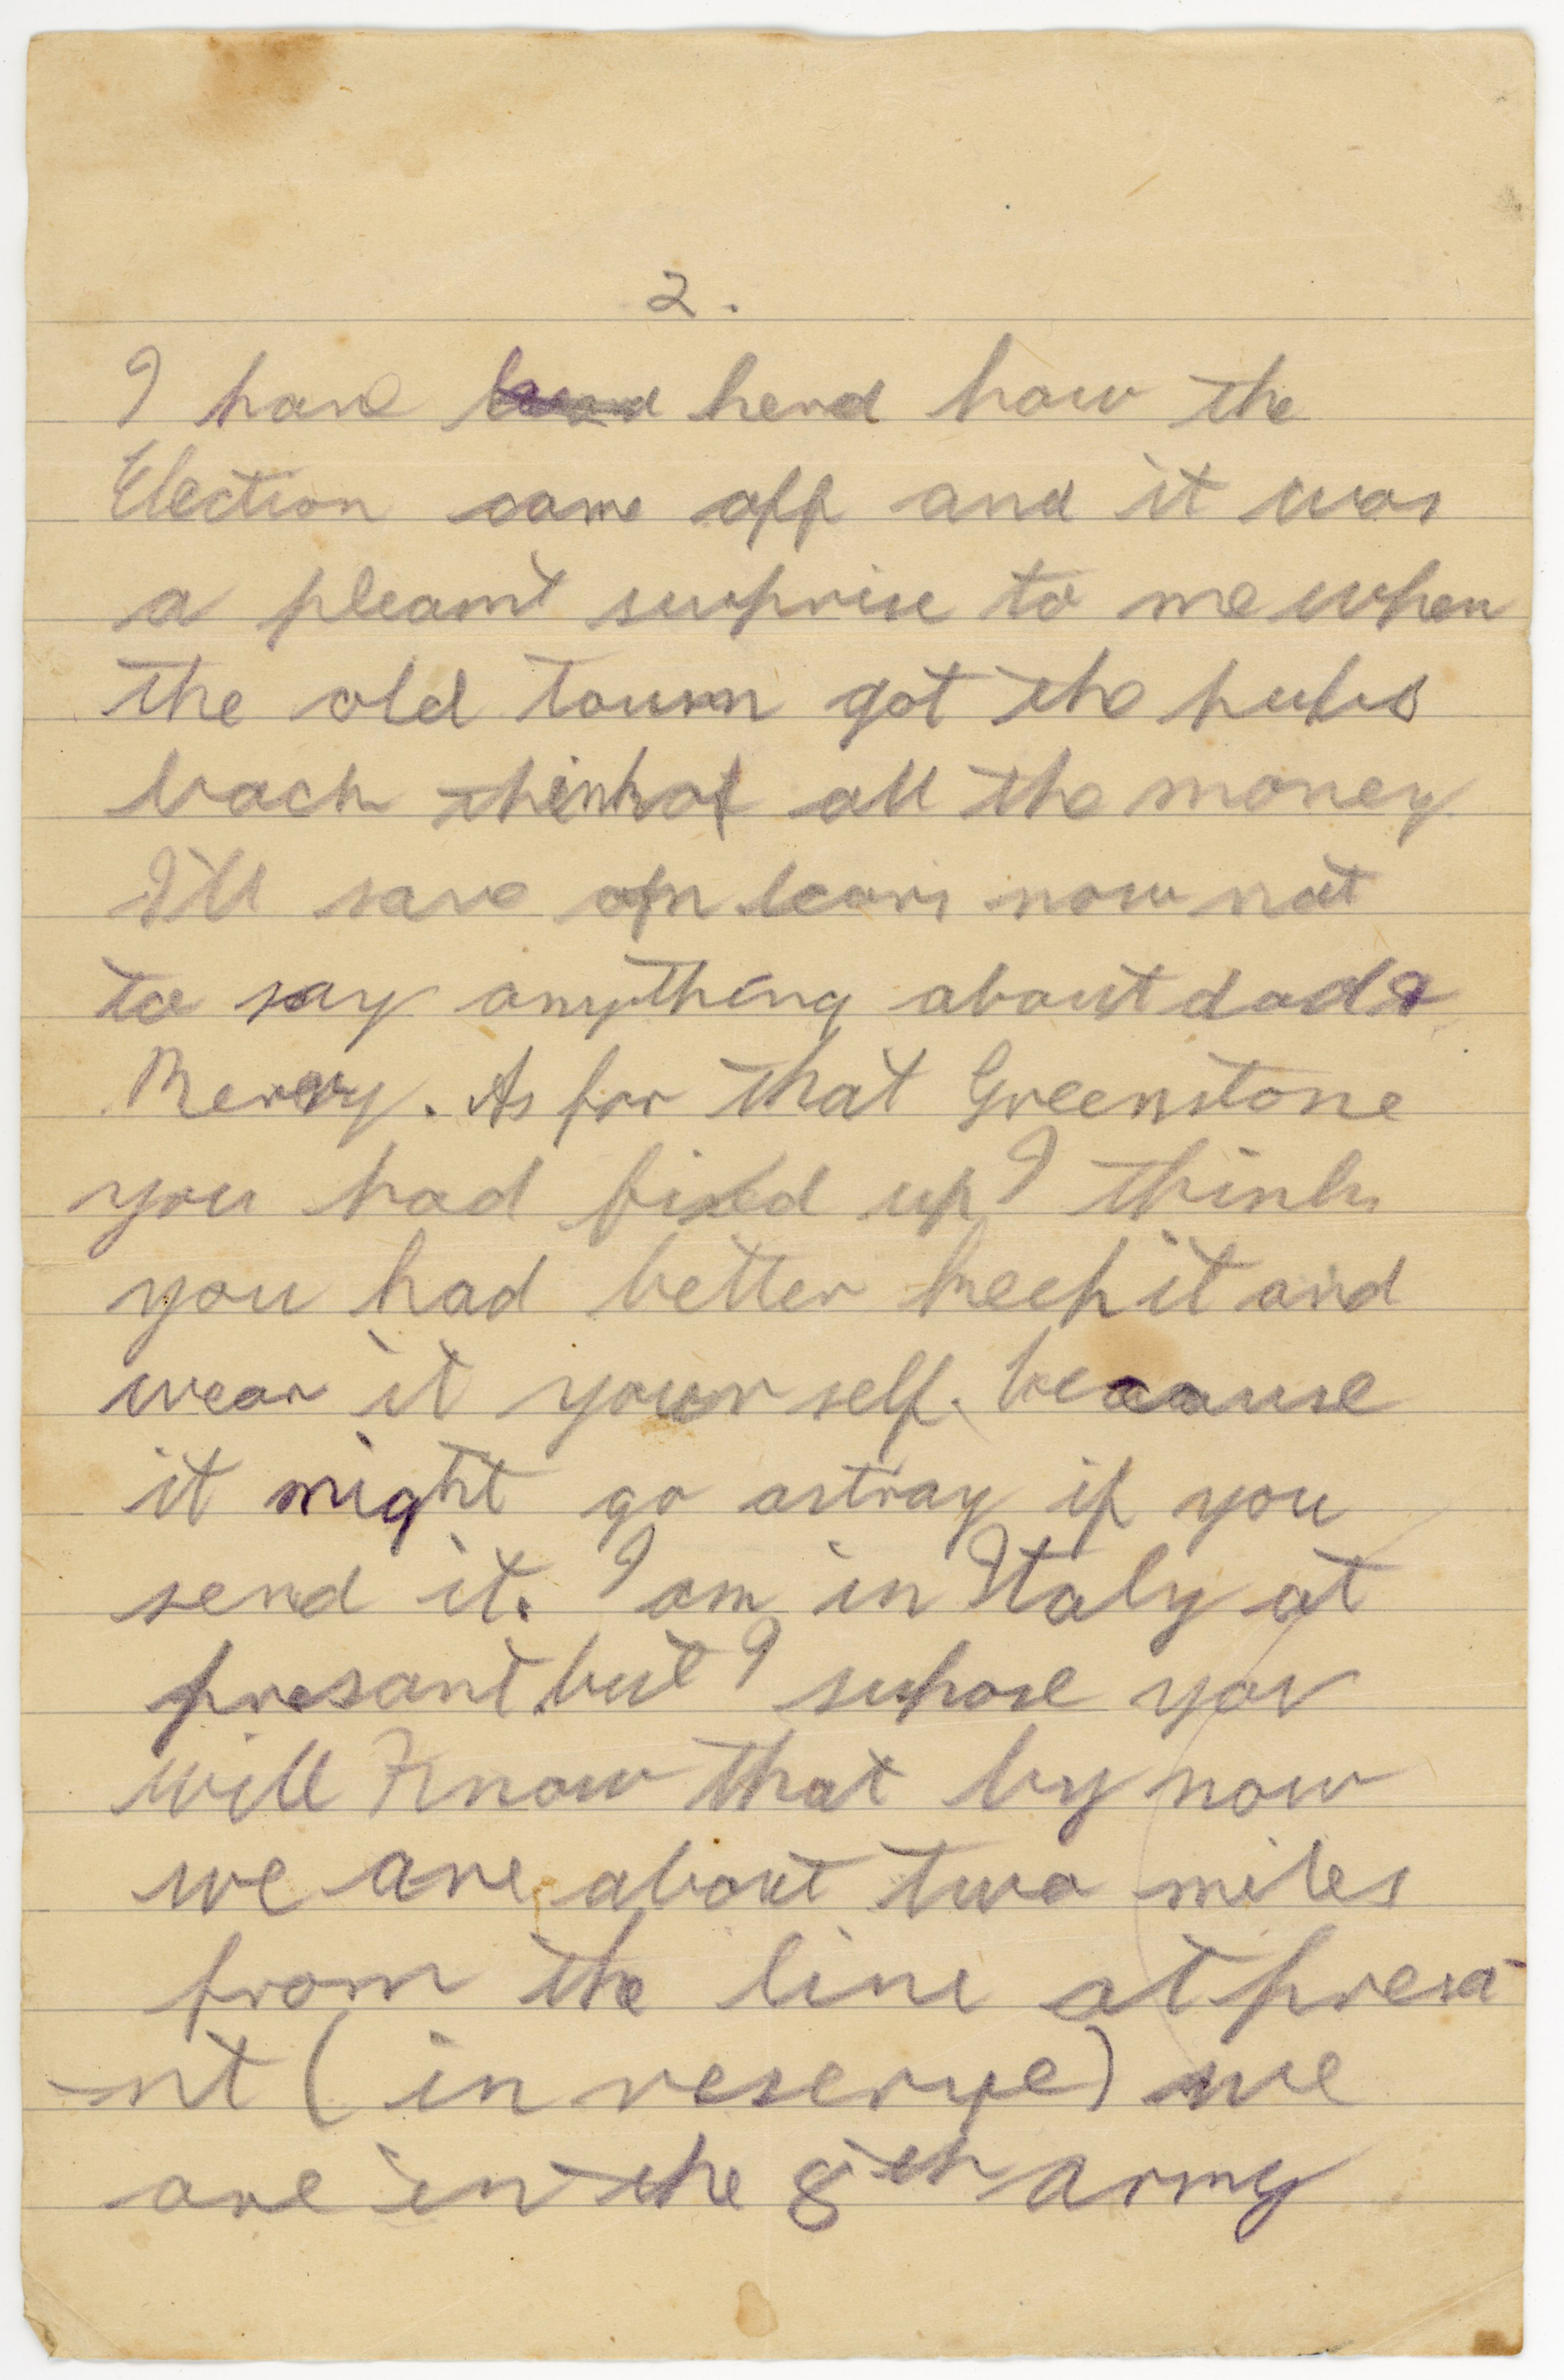 2.
I have herd how the
Election came off and it was
a pleasnt surprise to me when
the old town got the pubs
back think of all the money
I'll save on beers now not
to say anything about dad &
Mervy. As for that Greenstone
you had fixed up I think
you had better keep it and
wear it your self. because
it might go astray if you
send it. I am in Italy at
presant but I supose you
will Know that by now
we are about two miles
from the line at presa-
-nt (in reserve) we
are in the 8th army